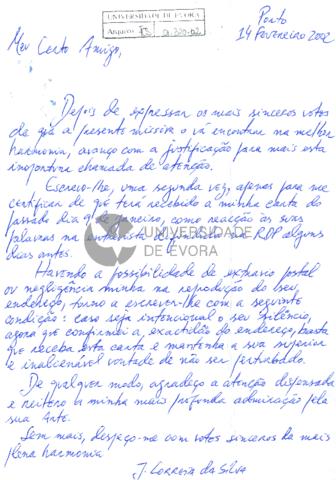 UNIVERSIDADE DE ÉVORA
Arquivo
Porto
14 Fevereiro 2002
Meu Caro Amigo,
Depois de expressar os mais sinceros votos
de que a presente missiva o vá encontrar na melhor
harmonia, avanço com a justificação para mais esta
inoportuna chamada de atenção.
Escrevo-lhe, uma segunda vez, apenas para me
certificar de que terá recebido a minha carta do
passado dia 9 de Janeiro, como reacção às suas
palavras na entrevista na RDP alguns
dias antes.
UNIVERSIDADE
DE ÉVORA
Havendo a possibilidade de extravio postal
ou negligência minha na reprodução do seu
endereço, torno a escrever-lhe com a seguinte
condição: caso seja intencional o seu silêncio,
agora que confirmei a exactidão do endereço, basta
que receba esta carta e mantenha a sua superior
e inalienável vontade de não ser perturbado.
De qualquer modo, agradeço a atenção dispensada
e reitero a minha mais profunda admiração pela
sua Arte.
Sem mais, despeço-me com votos sinceros da mais
plena harmonia
J. Correia da Silva